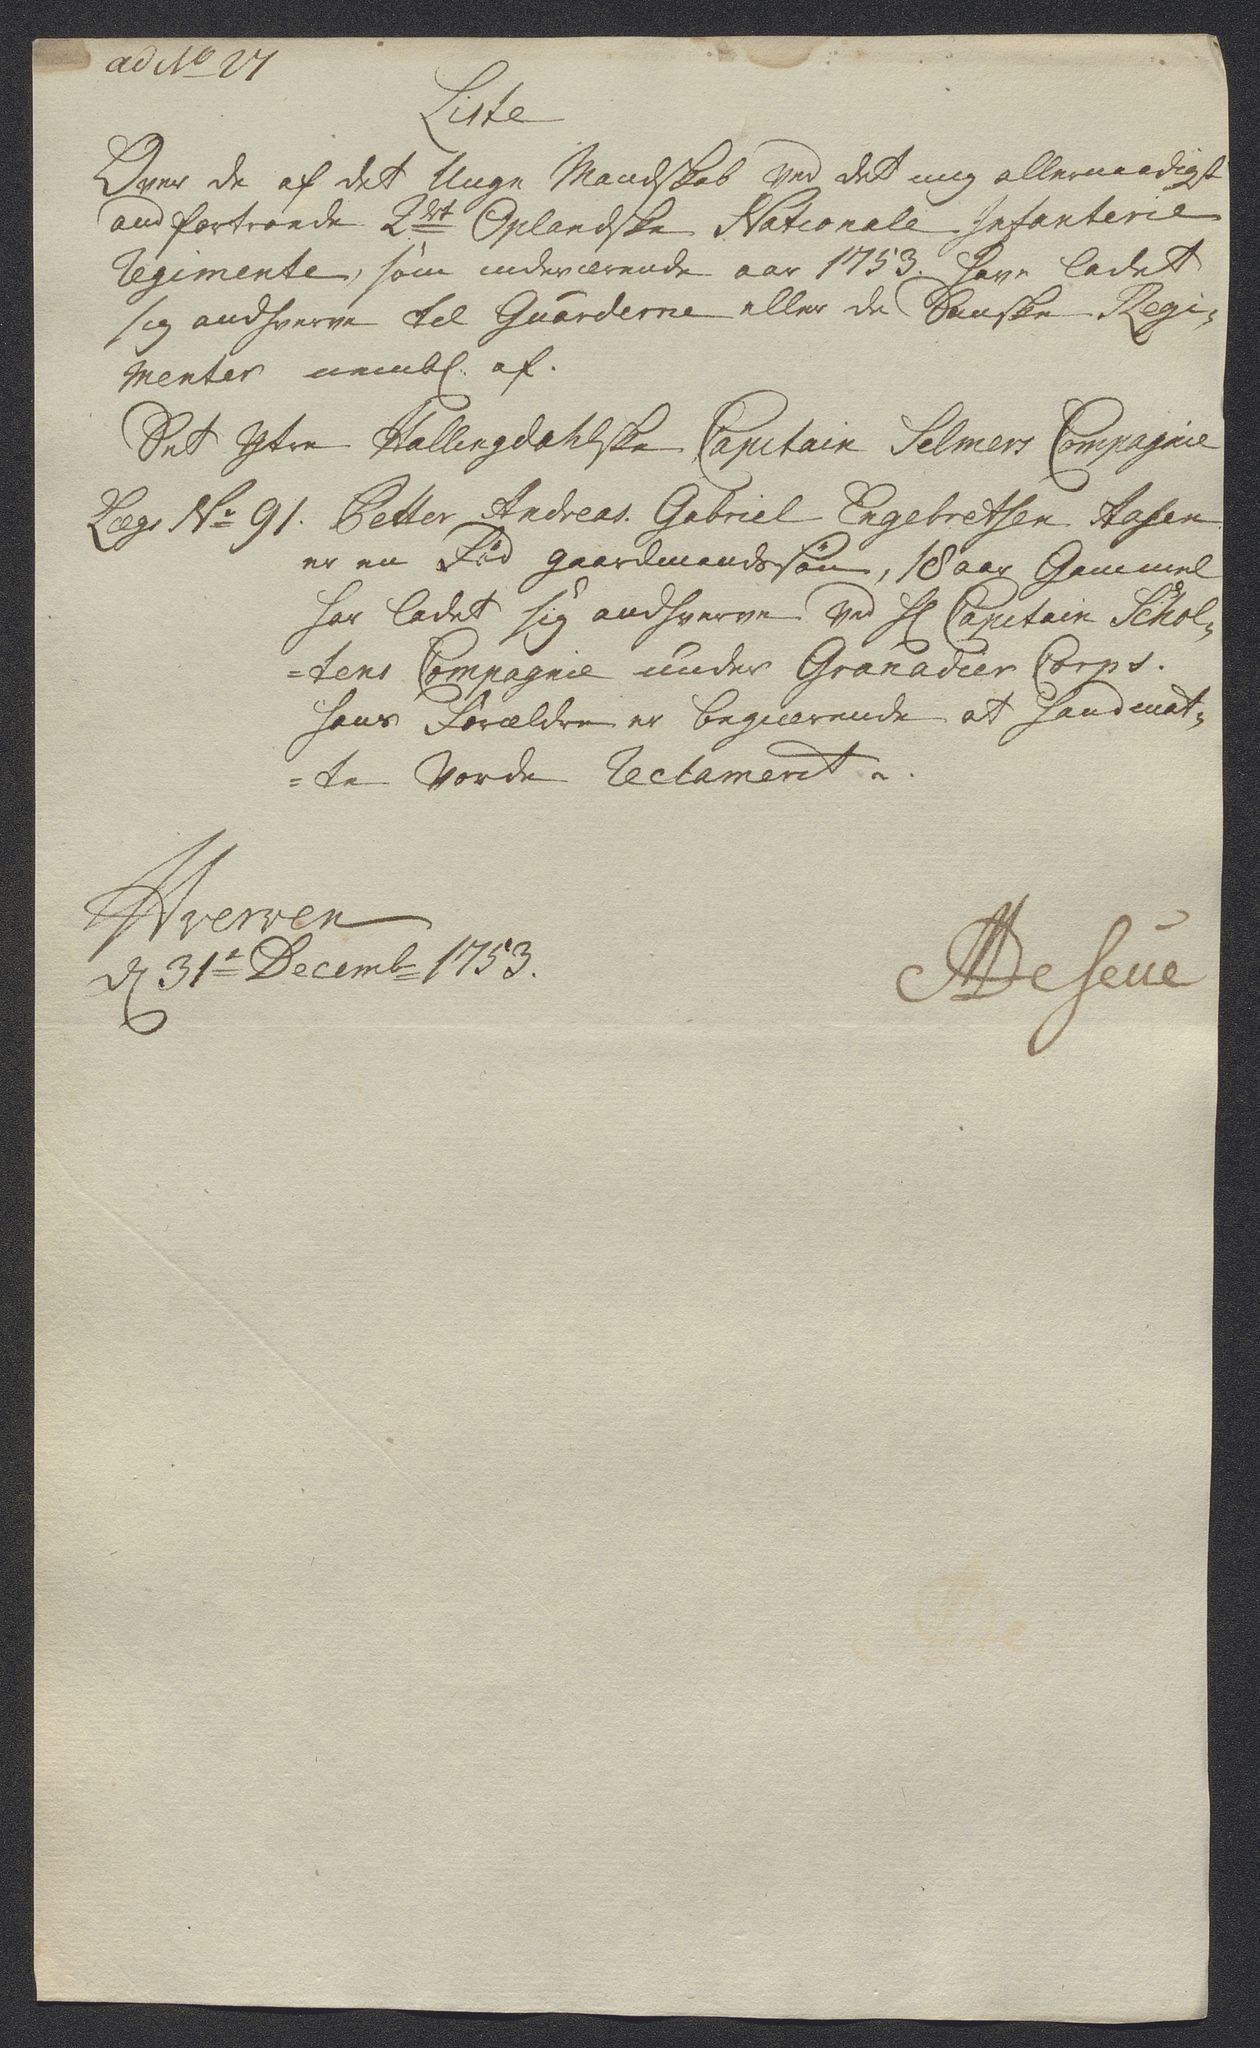 ad No 27
Liste
Over de af det Unge Mandskab ved det mig allernaadigst
andfortroede 2det Oplandske Nationale Infanterie
Regimente, som indeværende aar 1753. have ladet
sig andhverve til Guarderne eller de Danske Regi-
menter nembl. af.
Det Ytre Hallingdahlske Capitain Selmers Compagnie
Lægs No 91. Petter Andreas Gabriel Engebretsen Aasen
er en Fød gaardmandssøn, 18 aar Gammel
har ladet sig andhverve ved Hl Capitain Schol-
=tens Compagnie under Granadier Corps.
hans Forældre er begiærende at hand mat-
=te vorde Reclamerit
Hverven
d 31te Decembr 1753.
De Seue